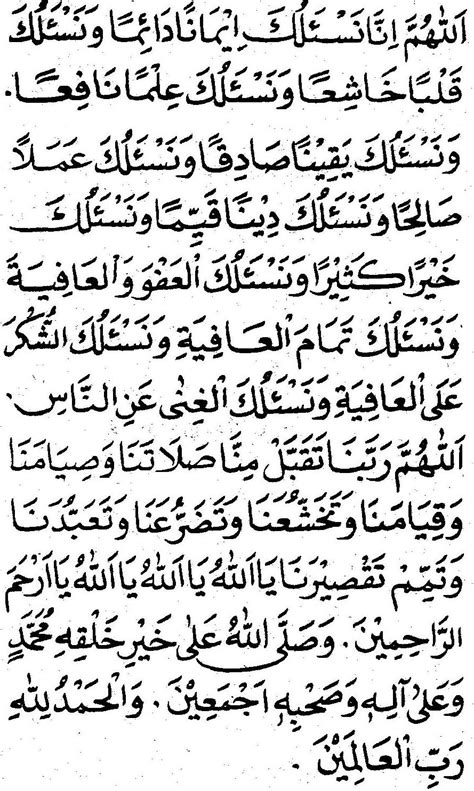 اَللّٰهُمَّ اِنَّا نَسْئَلُكَ اِيْمَانًا دَائِمًا وَنَسْئَلُكَ
قَلْبًا خَاشِعًا وَنَسْئَلُكَ عِلْمًا نَافِعًا.
وَنَسْئَلُكَ يَقِيْنًا صَادِقًا وَنَسْئَلُكَ عَمَلًا
صَالِحًا وَنَسْئَلُكَ دِيْنًا قَيِّمًا وَنَسْئَلُكَ
خَيْرًا كَثِيْرًا وَنَسْئَلُكَ الْعَفْوَ وَالْعَافِيَةَ
وَنَسْئَلُكَ تَمَامَ الْعَافِيَةِ وَنَسْئَلُكَ الشُّكْرَ
عَلَى الْعَافِيَةِ وَنَسْئَلُكَ الْغِنٰى عَنِ النَّاسِ.
اَللّٰهُمَّ رَبَّنَا تَقَبَّلْ مِنَّا صَلَاتَنَا وَصِيَامَنَا
وَقِيَامَنَا وَتَخَشُّعَنَا وَتَضَرُّعَنَا وَتَعَبُّدَنَا
وَتَمِّمْ تَقْصِيْرَنَا يَا اَللّٰهُ يَا اَللّٰهُ يَا اَللّٰهُ يَا اَرْحَمَ
الرَّاحِمِيْنَ. وَصَلَّى اللّٰهُ عَلٰى خَيْرِ خَلْقِهِ مُحَمَّدٍ
وَعَلٰى آلِهِ وَصَحْبِهِ اَجْمَعِيْنَ. وَالْحَمْدُ لِلّٰهِ
رَبِّ الْعَالَمِيْنَ.